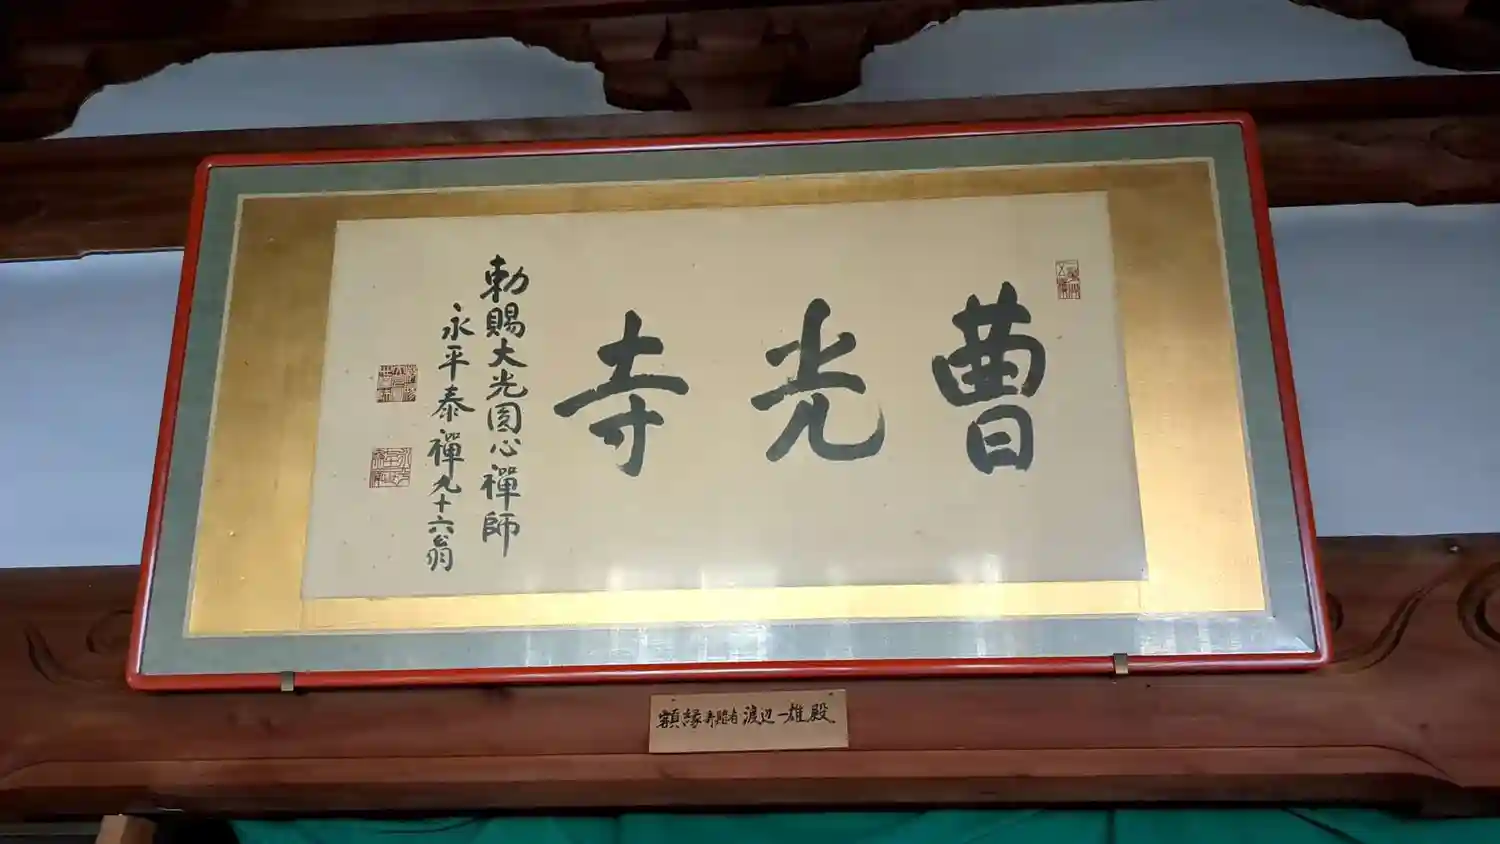 曹光寺
勅賜大光圓心禪師
永平泰禪九十六翁
額縁寄贈者渡辺一雄殿